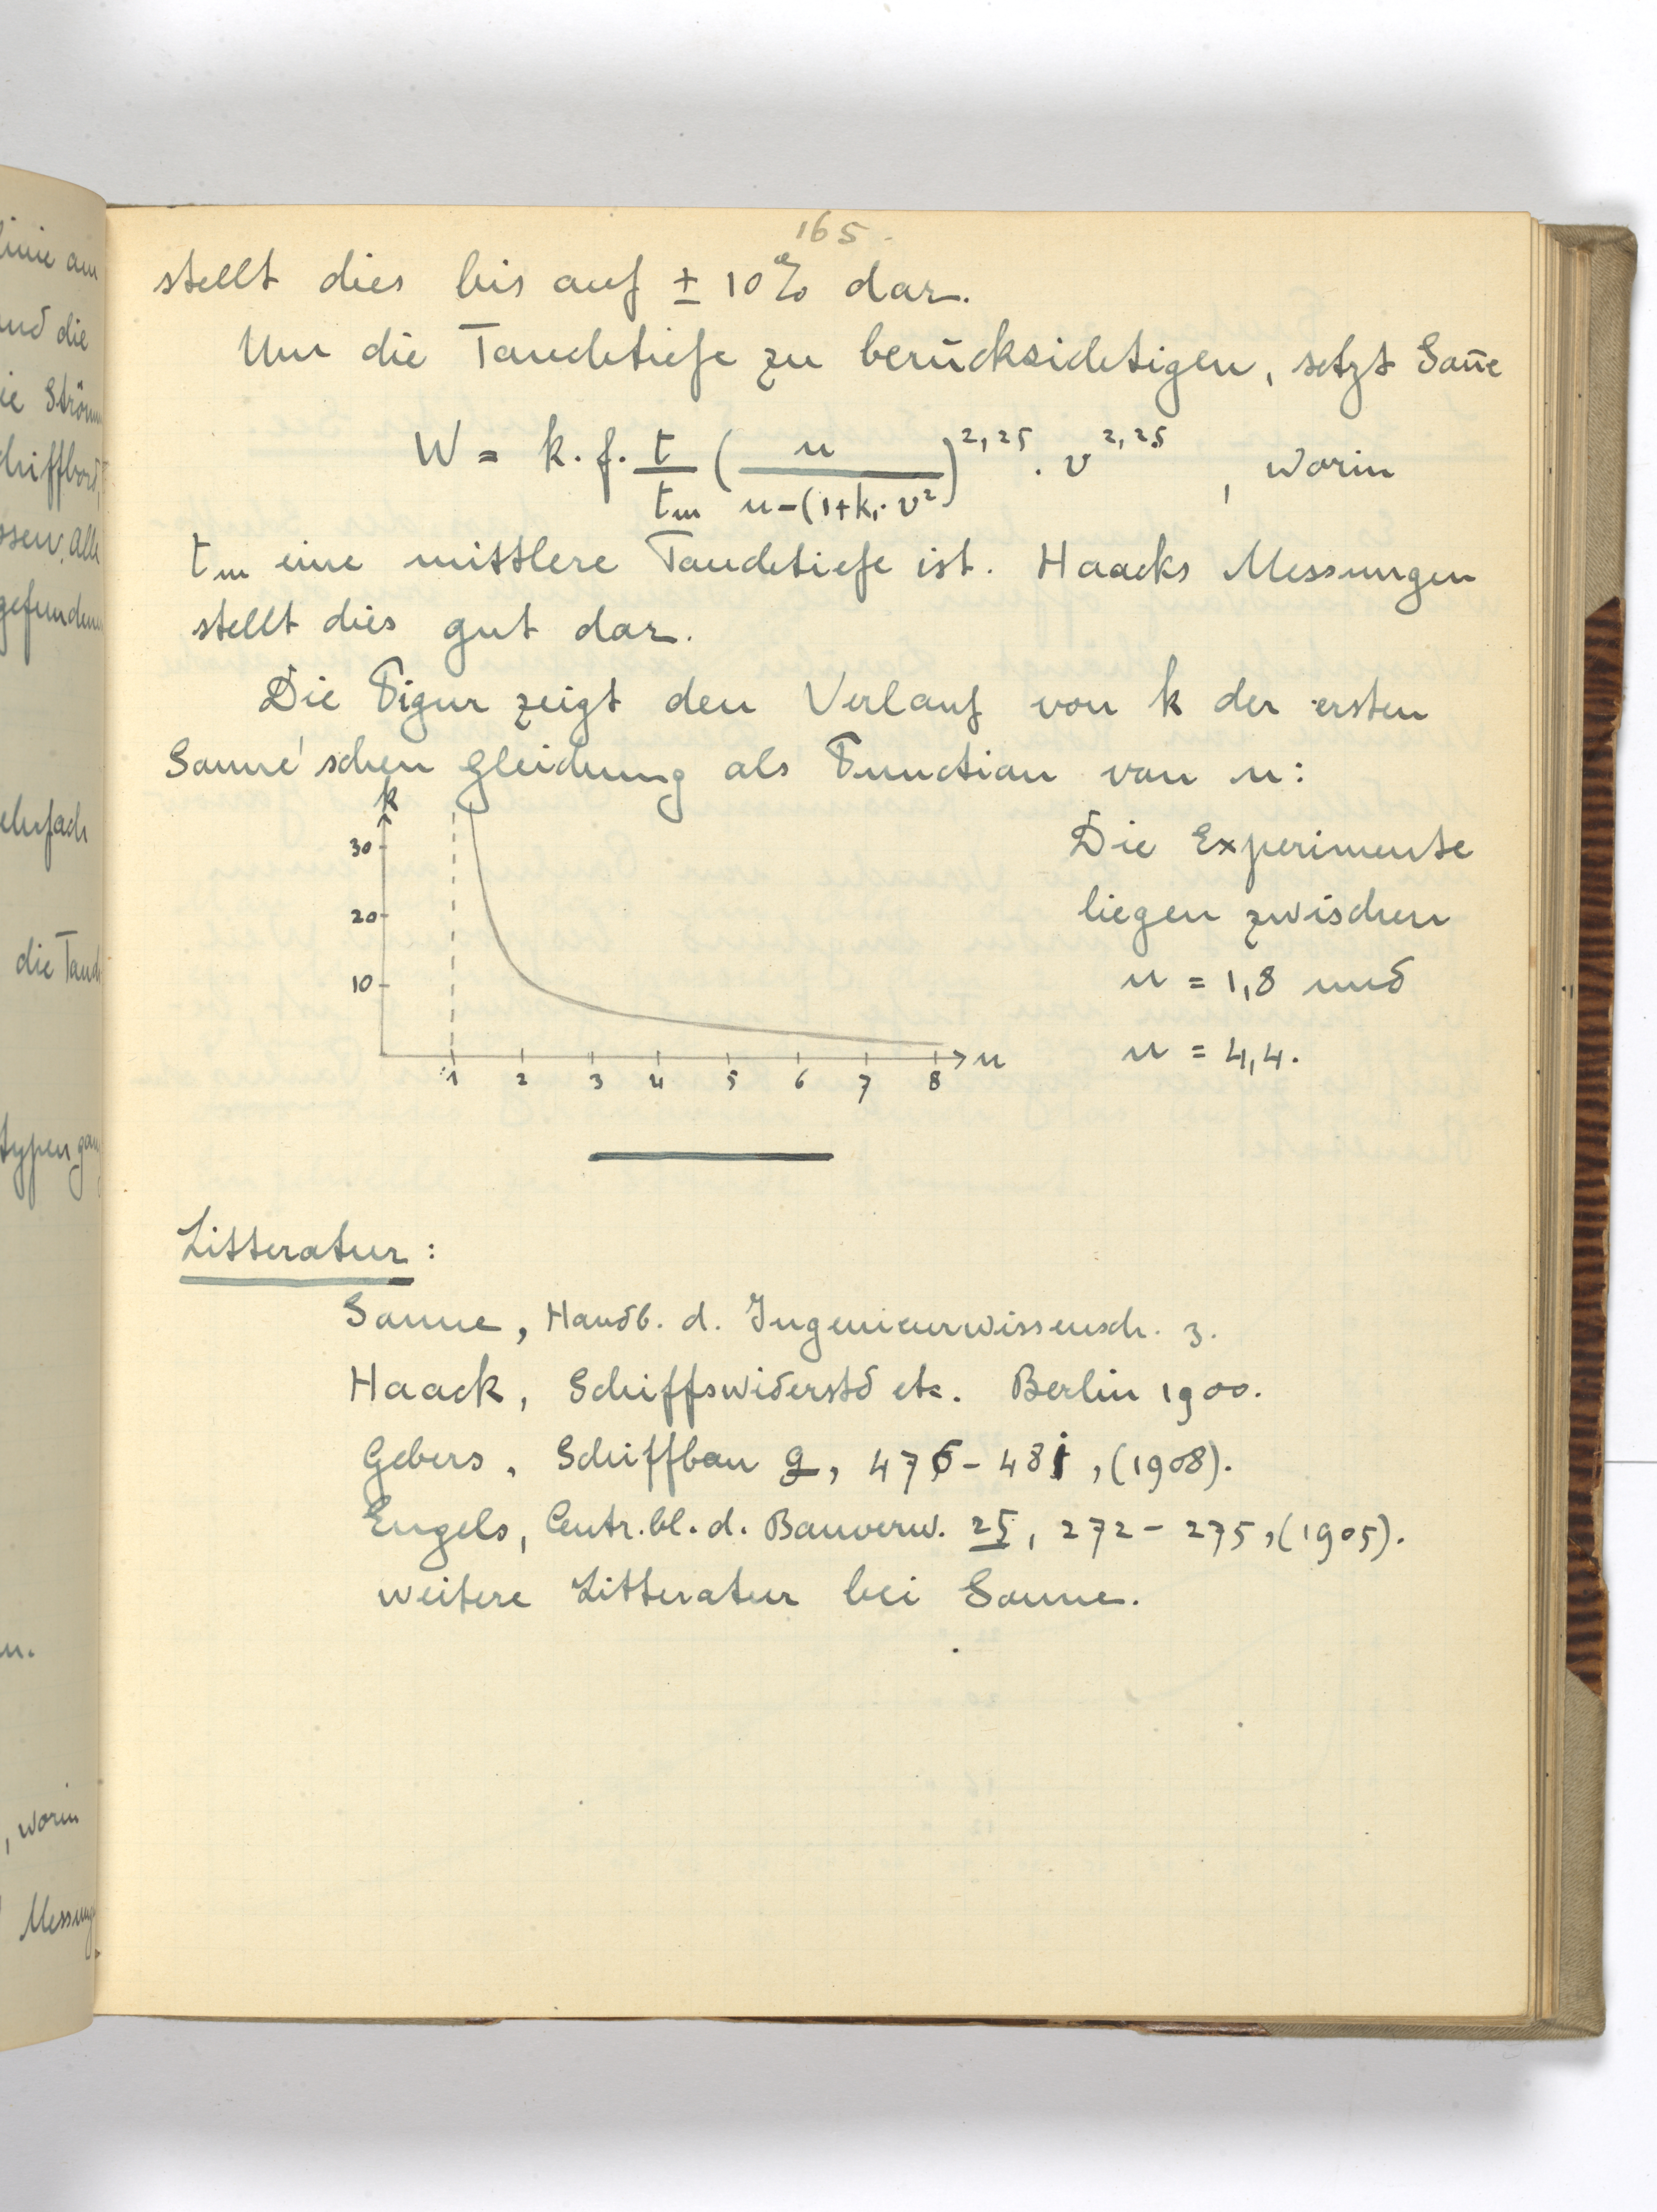 165.
stellt dies bis auf ± 10% dar.
Um die Tauchtiefe zu berücksichtigen, setzt Sonne
W = k. f. t/tm (n/n-(1+k₁. v²)^2,25 . v^2,25, worin
tm eine mittlere Tauchtiefe ist. Haacks Messungen
stellt dies gut dar.
Die Figur zeigt den Verlauf von k der ersten
Sonne'schen Gleichung als Function von n:
k
30
20
10
1 2 3 4 5 6 7 8 n
Die Experimente
liegen zwischen
n = 1,8 und
n = 4,4.
Litteratur:
Sonne, Handb. d. Ingenieurwissensch. 3.
Haack, Schiffswiderstd etc. Berlin 1900.
Gebers, Schiffbau 9, 476-481, (1908).
Engels, Centr.bl. d. Bauverw. 25, 272-275, (1905).
weitere Litteratur bei Sonne.